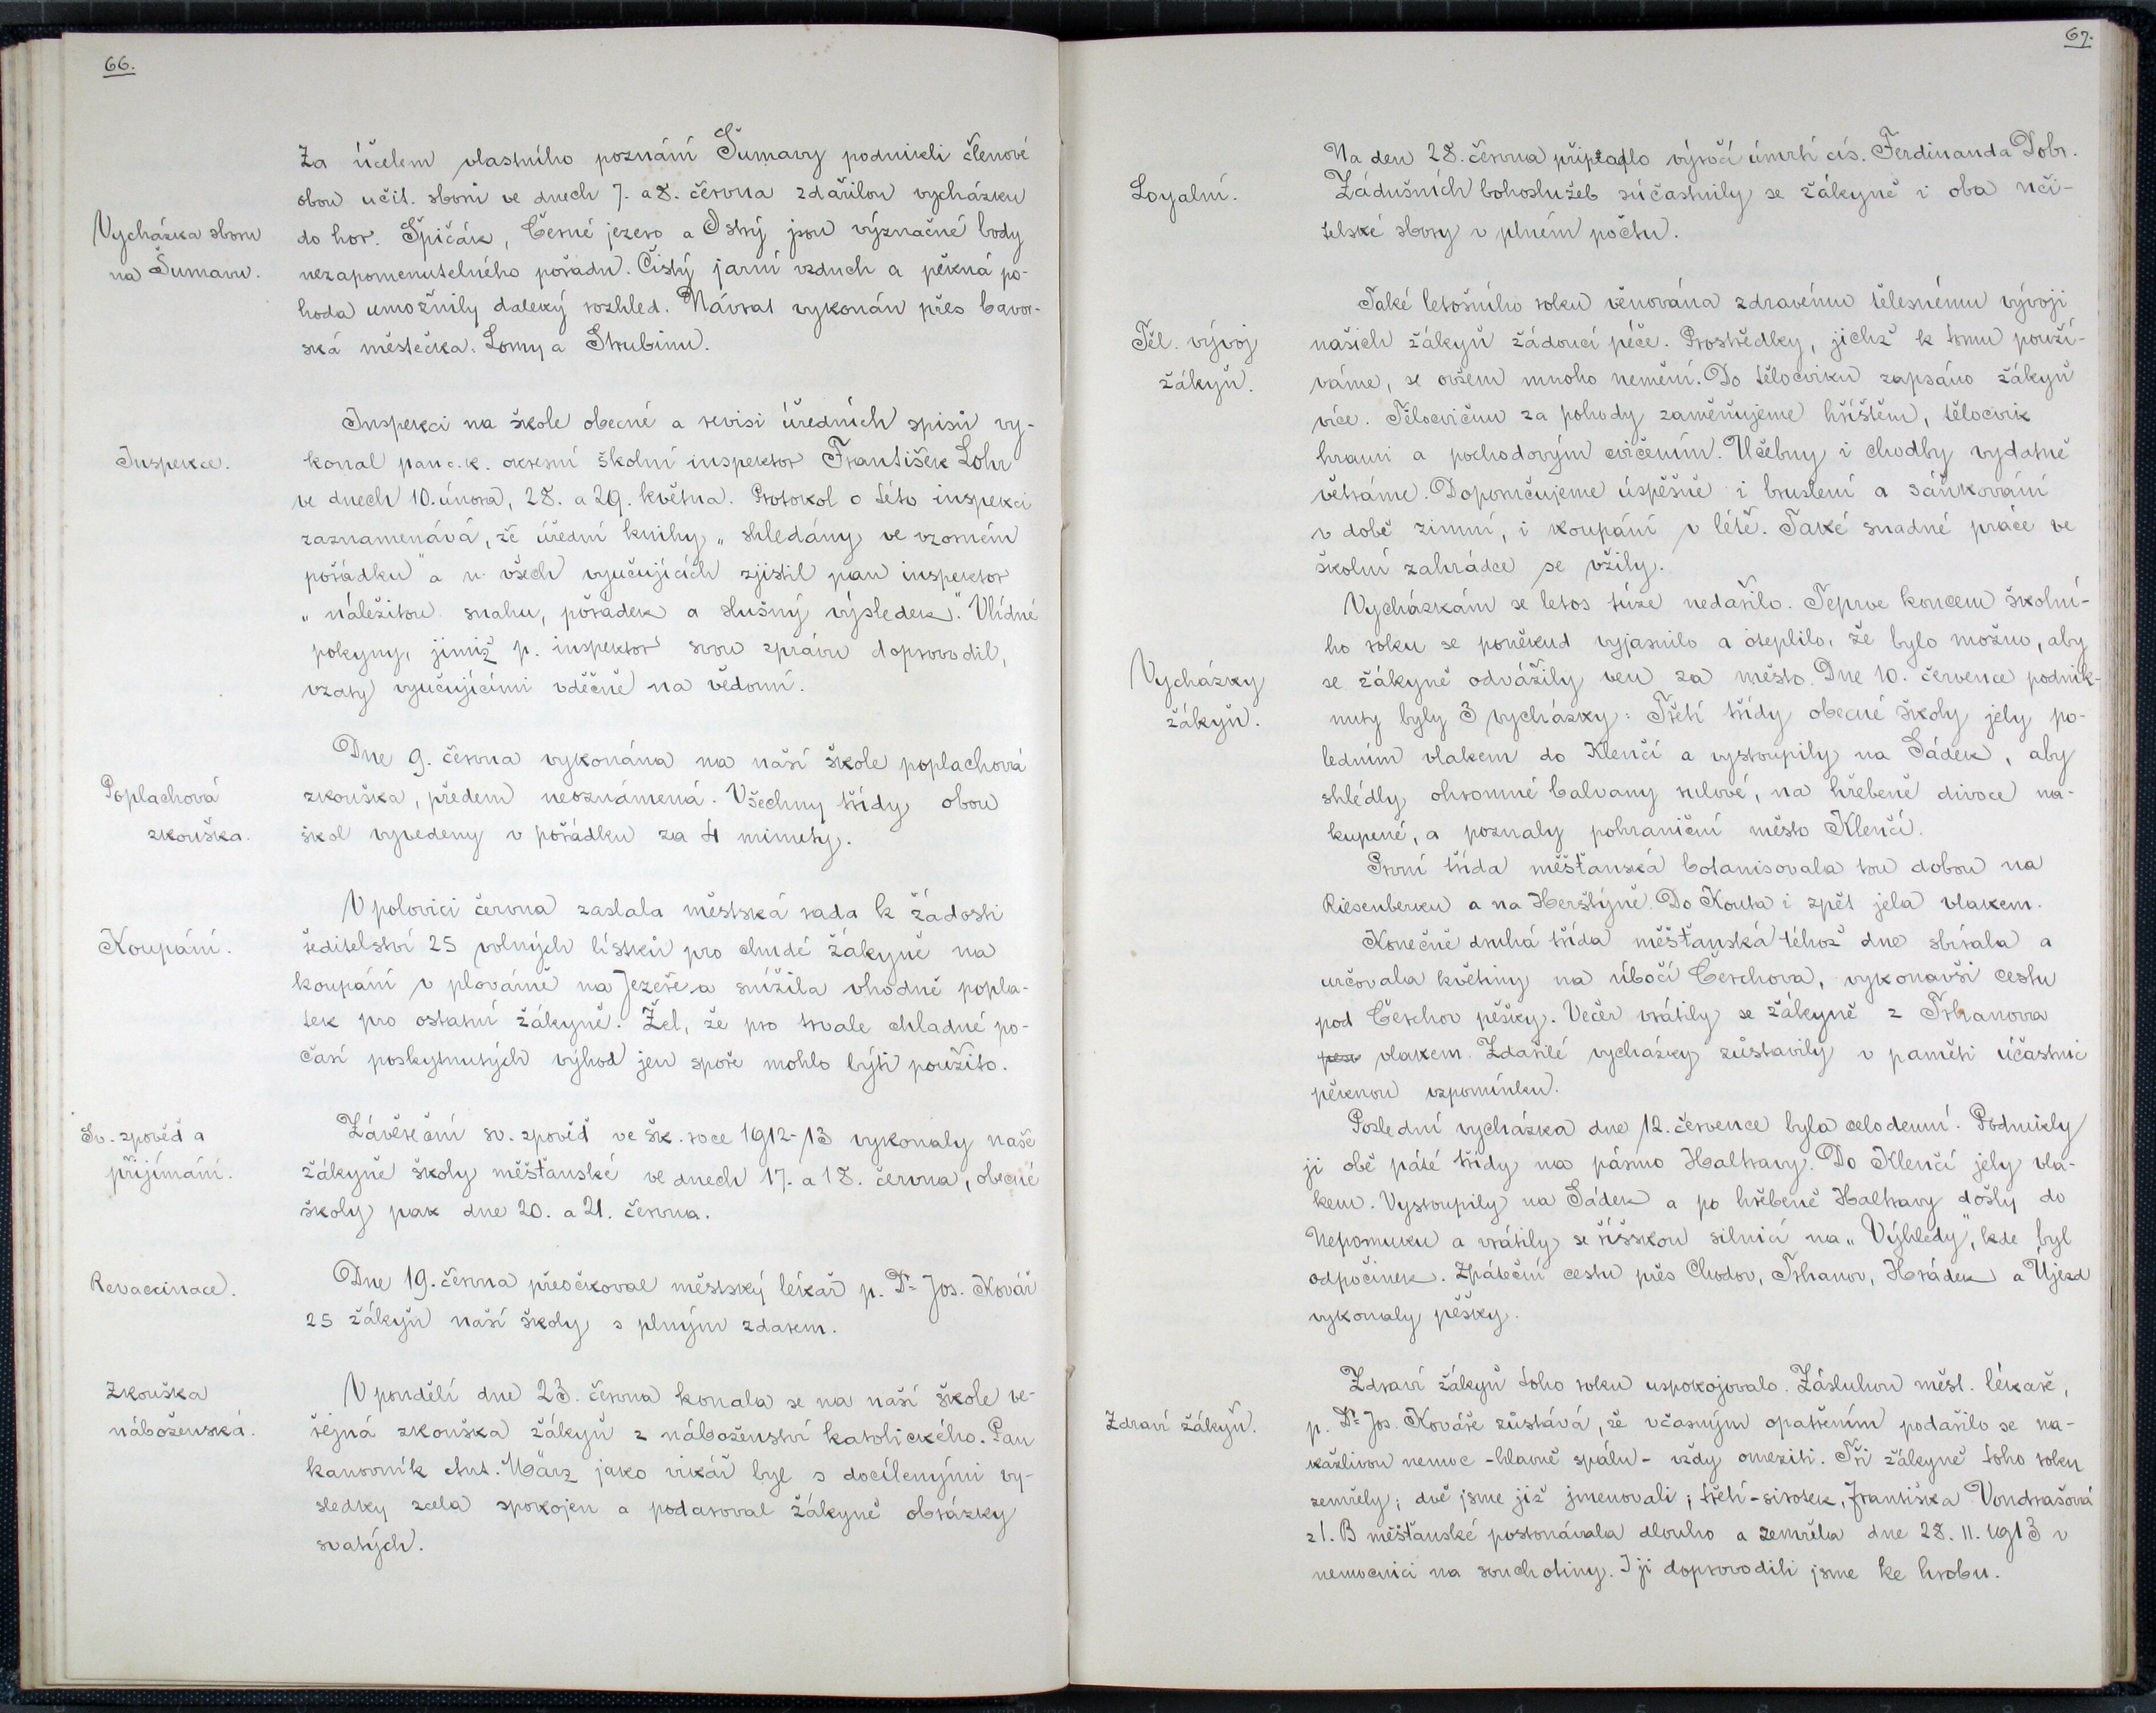 66.
Za účelem vlastního poznání Šumavy podnikli členové
obou učit. sborů ve dnech 7. a 8. června zdařilou vycházku
Vycházka sboru
na Šumavu.
do hor. Špičák, Černé jezero a Ostrý jsou význačné body
nezapomenutelného pořadu. Čistý jarní vzduch a pěkná po-
hoda umožnily daleký rozhled. Návrat vykonán přes bavor-
ská městečka: Lomy a Strubinu.
Inspekce.
Inspekci na škole obecné a revisi úředních spisů vy-
konal pan c. k. okresní školní inspektor František Lohr
ve dnech 10. února, 28. a 29. května. Protokol o této inspekci
zaznamenává, že úřední knihy „shledány ve vzorném
pořádku" a u všech vyučujících zjistil pan inspektor
„náležitou snahu, pořádek a slušný výsledek". Vlídné
pokyny, jimiž p. inspektor svou zprávu doprovodil,
vzaty vyučujícími vděčně na vědomí.
Poplachová
zkouška.
Dne 9. června vykonána na naší škole poplachová
zkouška, předem neoznámená. Všechny třídy obou
škol vyvedeny v pořádku za 4 minuty.
Koupání.
V polovici června zaslala městská rada k žádosti
ředitelství 25 volných lístků pro chudé žákyně na
koupání v plovárně na Jezeře a snížila vhodně popla-
tek pro ostatní žákyně. Žel, že pro trvale chladné po-
časí poskytnutých výhod jen spoře mohlo býti použito.
Sv. zpověď a
přijímání.
Závěreční sv. zpověď ve šk. roce 1912-13 vykonaly naše
žákyně školy měšťanské ve dnech 17. a 18. června, obecné
školy pak dne 20. a 21. června.
Revaccinace.
Dne 19. června přeočkoval městský lékař p. Dr Jos. Kovář
25 žákyň naší školy s plným zdarem.
Zkouška
náboženská.
V pondělí dne 23. června konala se na naší škole ve-
řejná zkouška žákyň z náboženství katolického. Pan
kanovník Ant. März jako vikář byl s docílenými vý-
sledky zcela spokojen a podaroval žákyně obrázky
svatých.
67.
Loyalní.
Na den 28. června připadlo výročí úmrtí cís. Ferdinanda Dobr.
Zádušních bohoslužeb súčastnily se žákyně i oba uči-
telské sbory v plném počtu.
Těl. vývoj
žákyň.
Také letošního roku věnována zdravému tělesnému vývoji
našich žákyň žádoucí péče. Prostředky, jichž k tomu použí-
váme, se ovšem mnoho nemění. Do tělocviku zapsáno žákyň
více. Tělocvičnu za pohody zaměňujeme hřištěm, tělocvik
hrami a pochodovým cvičením. Učebny i chodby vydatně
větráme. Doporučujeme úspěšně i bruslení a sáňkování
v době zimní, i koupání v létě. Také snadné práce ve
školní zahrádce se vžily.
Vycházky
žákyň.
Vycházkám se letos túze nedařilo. Teprve koncem školní-
ho roku se poněkud vyjasnilo a oteplilo, že bylo možno, aby
se žákyně odvážily ven za město. Dne 10. července podnik-
nuty byly 3 vycházky: Třetí třídy obecné školy jely po-
ledním vlakem do Klenčí a vystoupily na Sádek, aby
shlédly ohromné balvany rulové, na hřebeně divoce na-
kupené, a poznaly pohraniční město Klenčí.
První třída měšťanská botanisovala tou dobou na
Riesenberku a na Herštýně. Do Kouta i zpět jela vlakem.
Konečně druhá třída měšťanská téhož dne sbírala a
určovala květiny na úbočí Čerchova, vykonavši cestu
pod Čerchov pěšky. Večer vrátily se žákyně z Trhanova
vlakem. Zdařilé vycházky zůstavily v paměti účastnic
pěknou vzpomínku.
Poslední vycházka dne 12. července byla celodenní. Podnikly
ji obě páté třídy na pásmo Haltravy. Do Klenčí jely vla-
kem. Vystoupily na Sádek a po hřebeně Haltravy došly do
Nepomuku a vrátily se říšskou silnicí na „Výhledy", kde byl
odpočinek. Zpáteční cestu přes Chodov, Trhanov, Hrádek a Újezd
vykonaly pěšky.
Zdraví žákyň.
Zdraví žákyň toho roku uspokojovalo. Zásluhou měst. lékaře,
p. Dr Jos. Kováře zůstává, že včasným opatřením podařilo se na-
kažlivou nemoc - hlavně spálu - vždy omeziti. Tři žákyně toho roku
zemřely; dvě jsme již jmenovali; třetí - sirotek, Františka Vondrašová
z I. B měšťanské postonávala dlouho a zemřela dne 28. II. 1913 v
nemocnici na souchotiny. I ji doprovodili jsme ke hrobu.